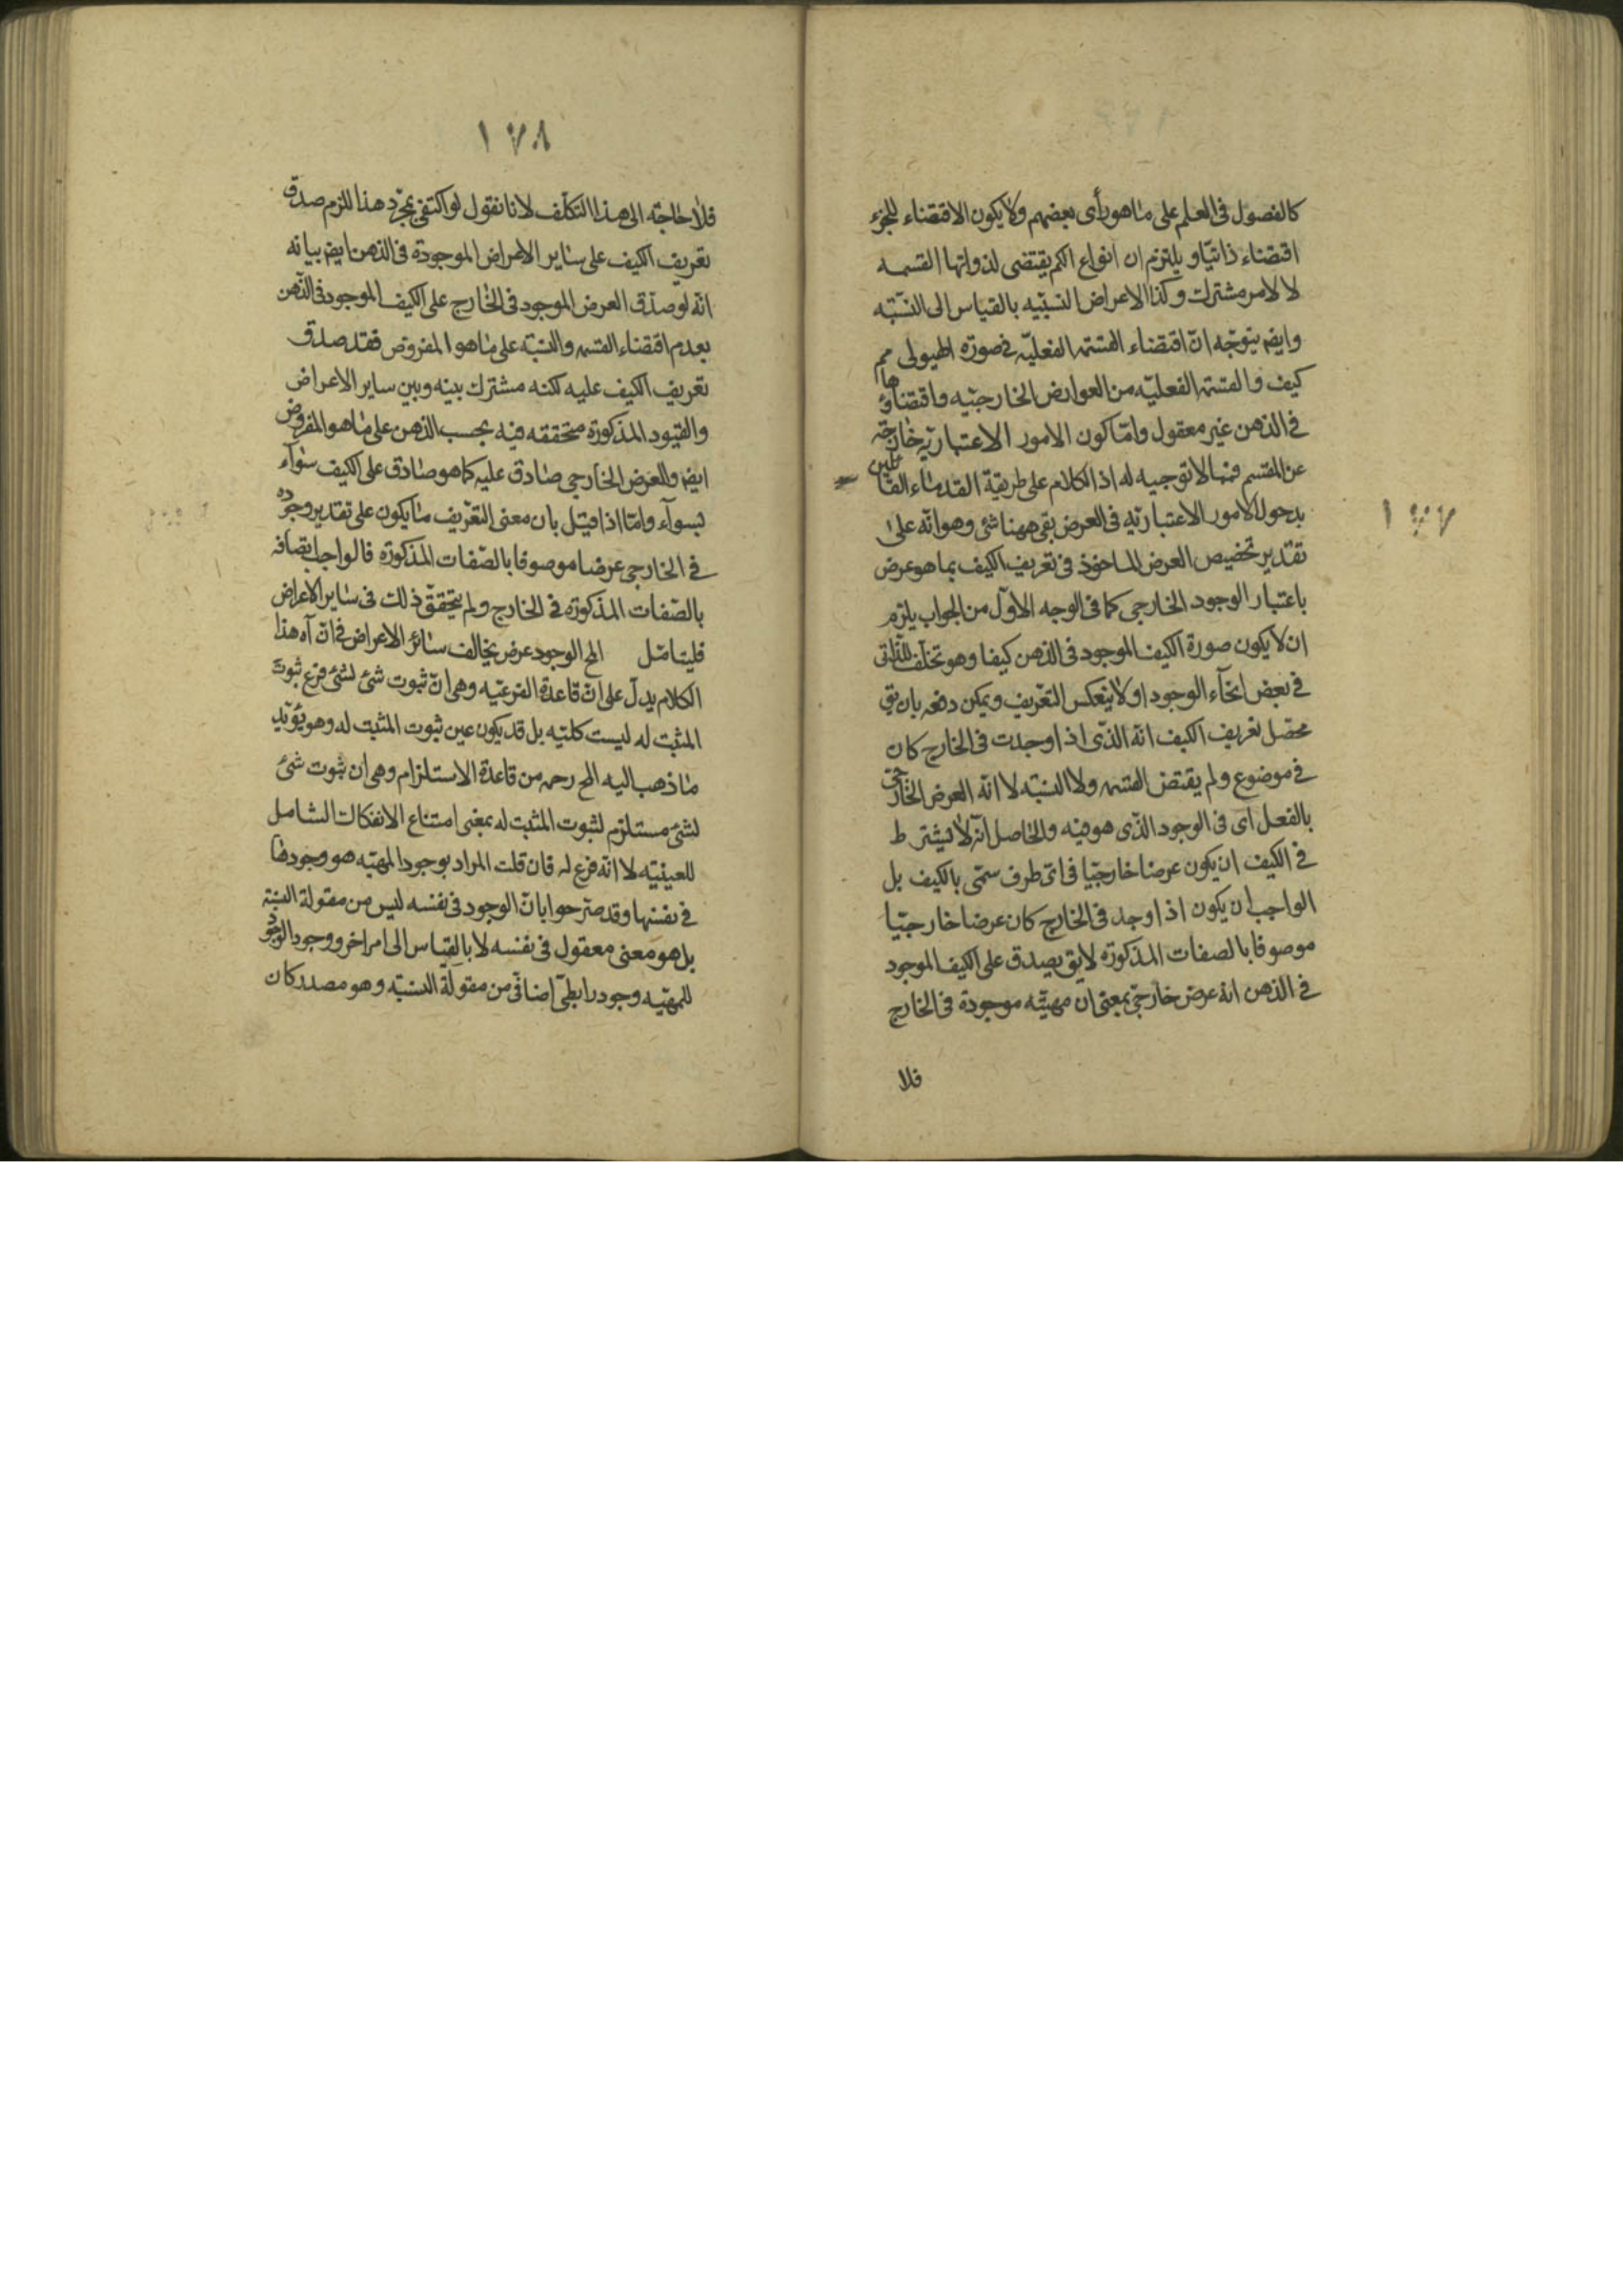 كالفصول فى العلم على ما هو رأى بعضهم ولا يكون الاقتضاء للجزء
اقتضاء ذاتيا و يلتزم ان انواع الكم يقتضى لذواتها القسمه
لا لامر مشترك وكذا الاعراض النسبيه بالقياس الى النسبته
وايضه يتوجه ان اقتضاء القسمه الفعليه فى صورة الهيولى مم
كيف والقسمة الفعليه من العوارض الخارجيه واقتضاؤها
فى الذهن غير معقول واما كون الامور الاعتباريه خارجة
عن المقسم فمما لا توجيه له اذ الكلام على طريقة القدماء القائلين
بدخول الامور الاعتباريه فى العرض بقى ههنا شئ وهو انه على
تقدير تخصيص العرض الماخوذ فى تعريف الكيف بما هو عرض
باعتبار الوجود الخارجى كما فى الوجه الاول من الجواب يلزم
ان لا يكون صورة الكيف الموجود فى الذهن كيفا وهو تخلف للذاتى
فى بعض انحآء الوجود او لا ينعكس التعريف ويمكن دفعه بان يق
محصل تعريف الكيف انه الذى اذا وجدت فى الخارج كان
فى موضوع ولم يقتض القسمه ولا النسبته لا انه العرض الخارجى
بالفعل اى فى الوجود الذى هو فيه والحاصل انه لا يشترط
فى الكيف ان يكون عرضا خارجيا فى اى ظرف سمى بالكيف بل
الواجب ان يكون اذا وجد فى الخارج كان عرضا خارجيا
موصوفا بالصفات المذكوره لا يق يصدق على الكيف الموجود
فى الذهن انه عرض خارجى بمعنى ان مهيته موجودة فى الخارج
فلا
١٧٧
١٧٨
فلا حاجة الى هذا التكلف لانا نقول لو اكتفى بمجرد هذا للزم صدق
تعريف الكيف على ساير الاعراض الموجودة فى الذهن ايضه بيانه
انه لو صدق العرض الموجود فى الخارج على الكيف الموجود فى الذهن
بعدم اقتضاء القسمه والنسبته على ما هو المفروض فقد صدق
تعريف الكيف عليه لكنه مشترك بينه وبين ساير الاعراض
والقيود المذكورة متحققه فيه بحسب الذهن على ما هو المفروض
ايضه والعرض الخارجى صادق عليه كما هو صادق على الكيف سوآء
بسوآء واما اذا قيل بان معنى التعريف ما يكون على تقدير وجوده
فى الخارجى عرضا موصوفا بالصفات المذكوره فالواجب اتصافه
بالصفات المذكوره فى الخارج ولم يتحقق ذلك فى ساير الاعراض
فليتامل الخ الوجود عرض يخالف سائر الاعراض فى ان آه هذا
الكلام يدل على ان قاعدة الفرعيه وهى ان ثبوت شئ لشئ فرع ثبوت
المثبت له ليست كليه بل قد يكون عين ثبوت المثبت له وهو يؤيد
ما ذهب اليه المح رحمه من قاعدة الاستلزام وهى ان ثبوت شئ
لشئ مستلزم لثبوت المثبت له بمعنى امتناع الانفكاك الشامل
للعينيه لا انه فرع له فان قلت المراد بوجود المهيه هو وجودها
فى نفسها وقد صرحوا بان الوجود فى نفسه ليس من مقولة النسبة
بل هو معنى معقول فى نفسه لا بالقياس الى امر اخر ووجود الوجود
للمهيه وجود رابطى اضافى من مقولة النسبته وهو مصدر كان